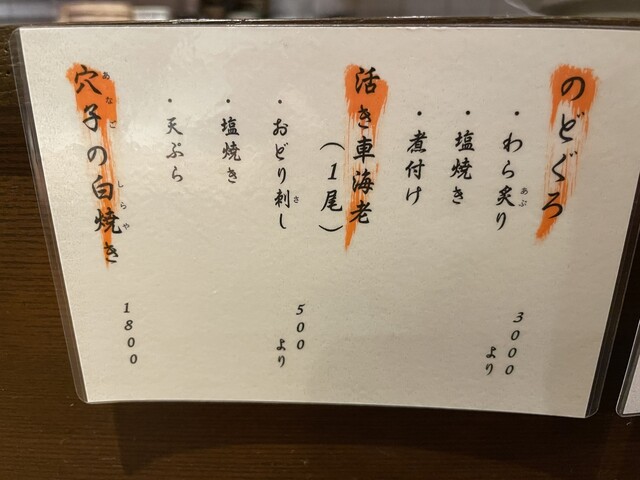 のどぐろ
・わら炙り
あぶ
・塩焼き
・煮付け
3000
より
活き車海老
(1尾)
・おどり刺し
さ
・塩焼き
・天ぷら
500
より
穴子の白焼き
あなご
しらや
1800